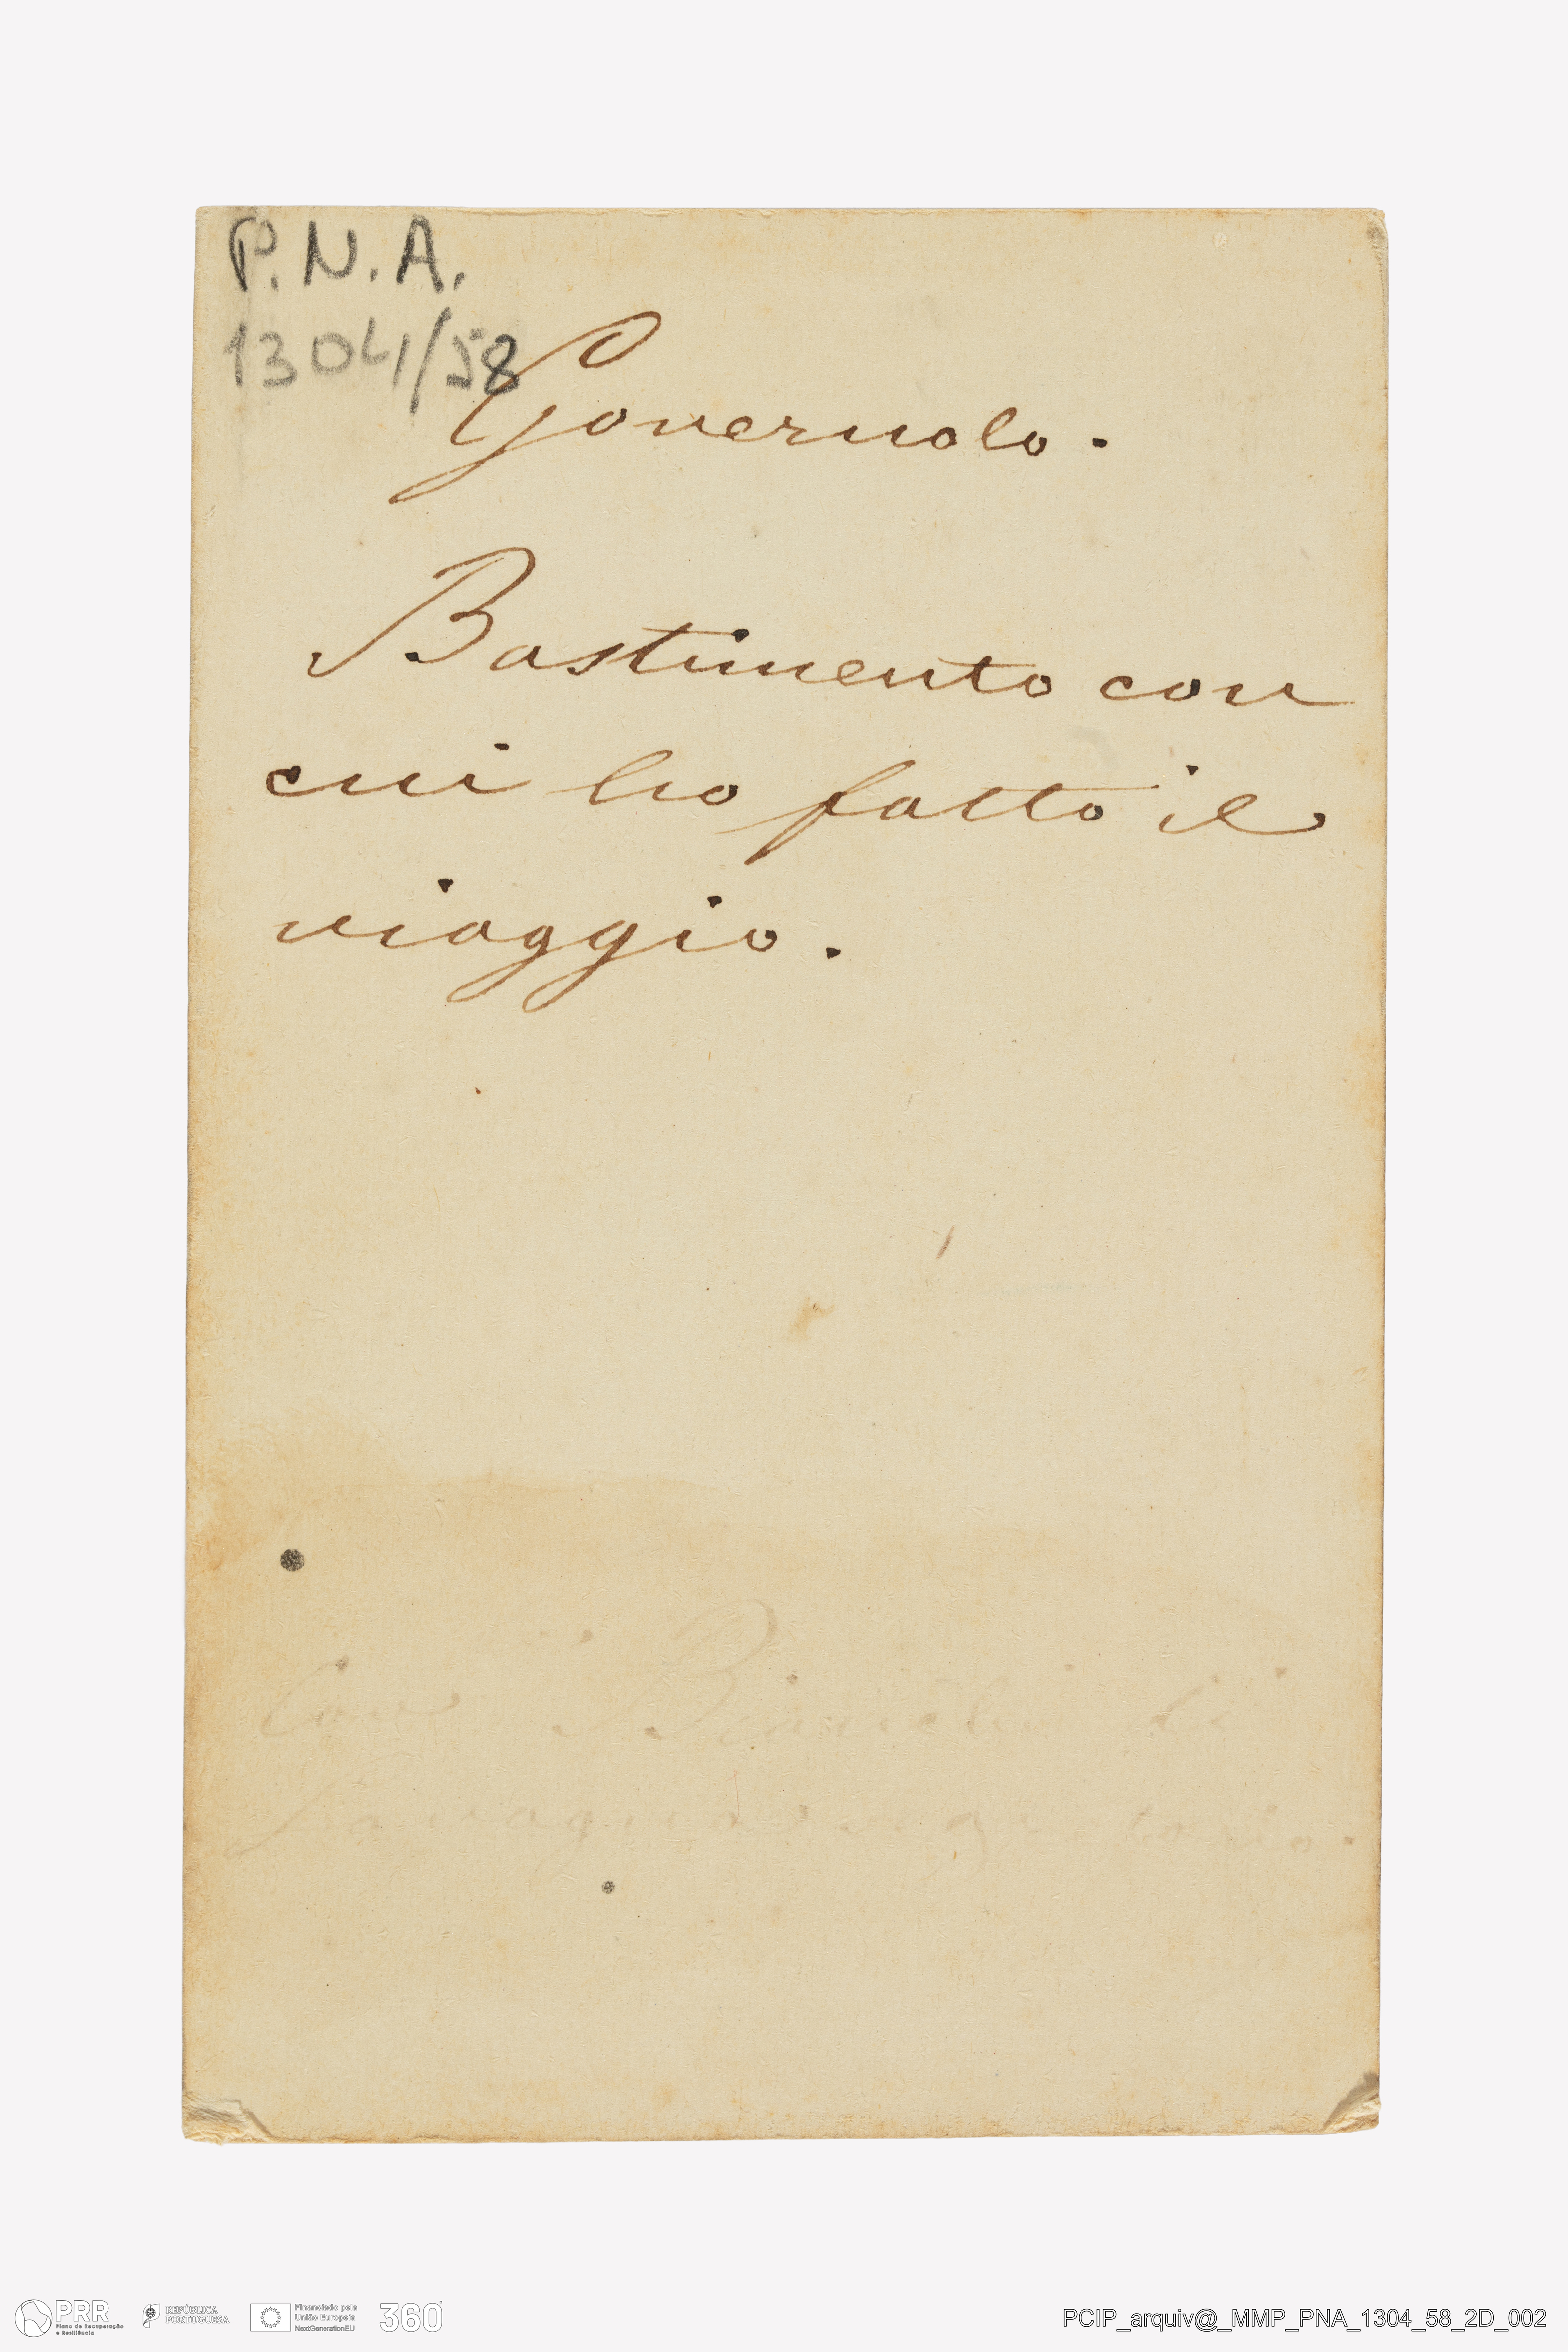 P.N.A.
1304/58
Governolo.
Bastimento con
cui ho fatto il
viaggio.
Bianchi di
PRR
Plano de Recuperação
e Resiliência
REPÚBLICA
PORTUGUESA
Financiado pela
União Europeia
NextGenerationEU
360°
PCIP_arquiv@_MMP_PNA_1304_58_2D_002